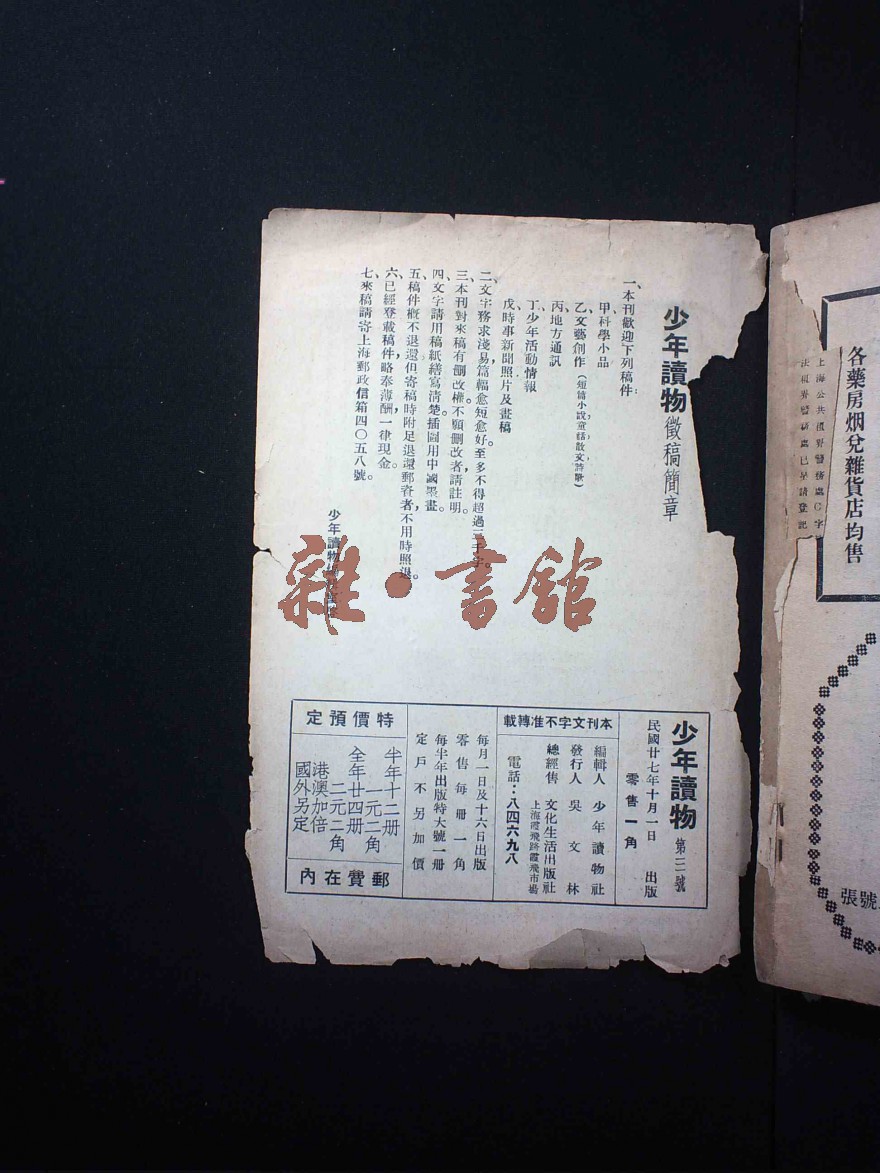 各藥房烟兌雜貨店均售
上海公共租界警務處C字
法租界警務處已呈請登記
號張
少年讀物徵稿簡章
一、本刊歡迎下列稿件：
甲、科學小品
乙、文藝創作（短篇小說，童話，散文，詩歌）
丙、地方通訊
丁、少年活動情報
戊、時事新聞照片及畫稿
二、文字務求淺易，篇幅愈短愈好。至多不得超過三千字。
三、本刊對來稿有刪改權，不願刪改者，請註明。
四、文字請用稿紙繕寫清楚。插圖用中國墨畫。
五、稿件概不退還，但寄稿時附足退還郵資者，不用時照退。
六、已經登載稿件，略奉薄酬，一律現金。
七、來稿請寄上海郵政信箱四〇五八號。
少年讀物
雜·書館
少年讀物 第三號
民國廿七年十月一日 出版
零售一角
本刊文字不准轉載
編輯人 少年讀物社
發行人 吳文林
總經售 文化生活出版社
上海霞飛路霞飛市場
電話：八四六九八
每月一日及十六日出版
零售每冊一角
每半年出版特大號一冊
定戶不另加價
特價預定
半年十二冊
一元二角
全年廿四冊
二元二角
港澳加倍
國外另定
郵費在內